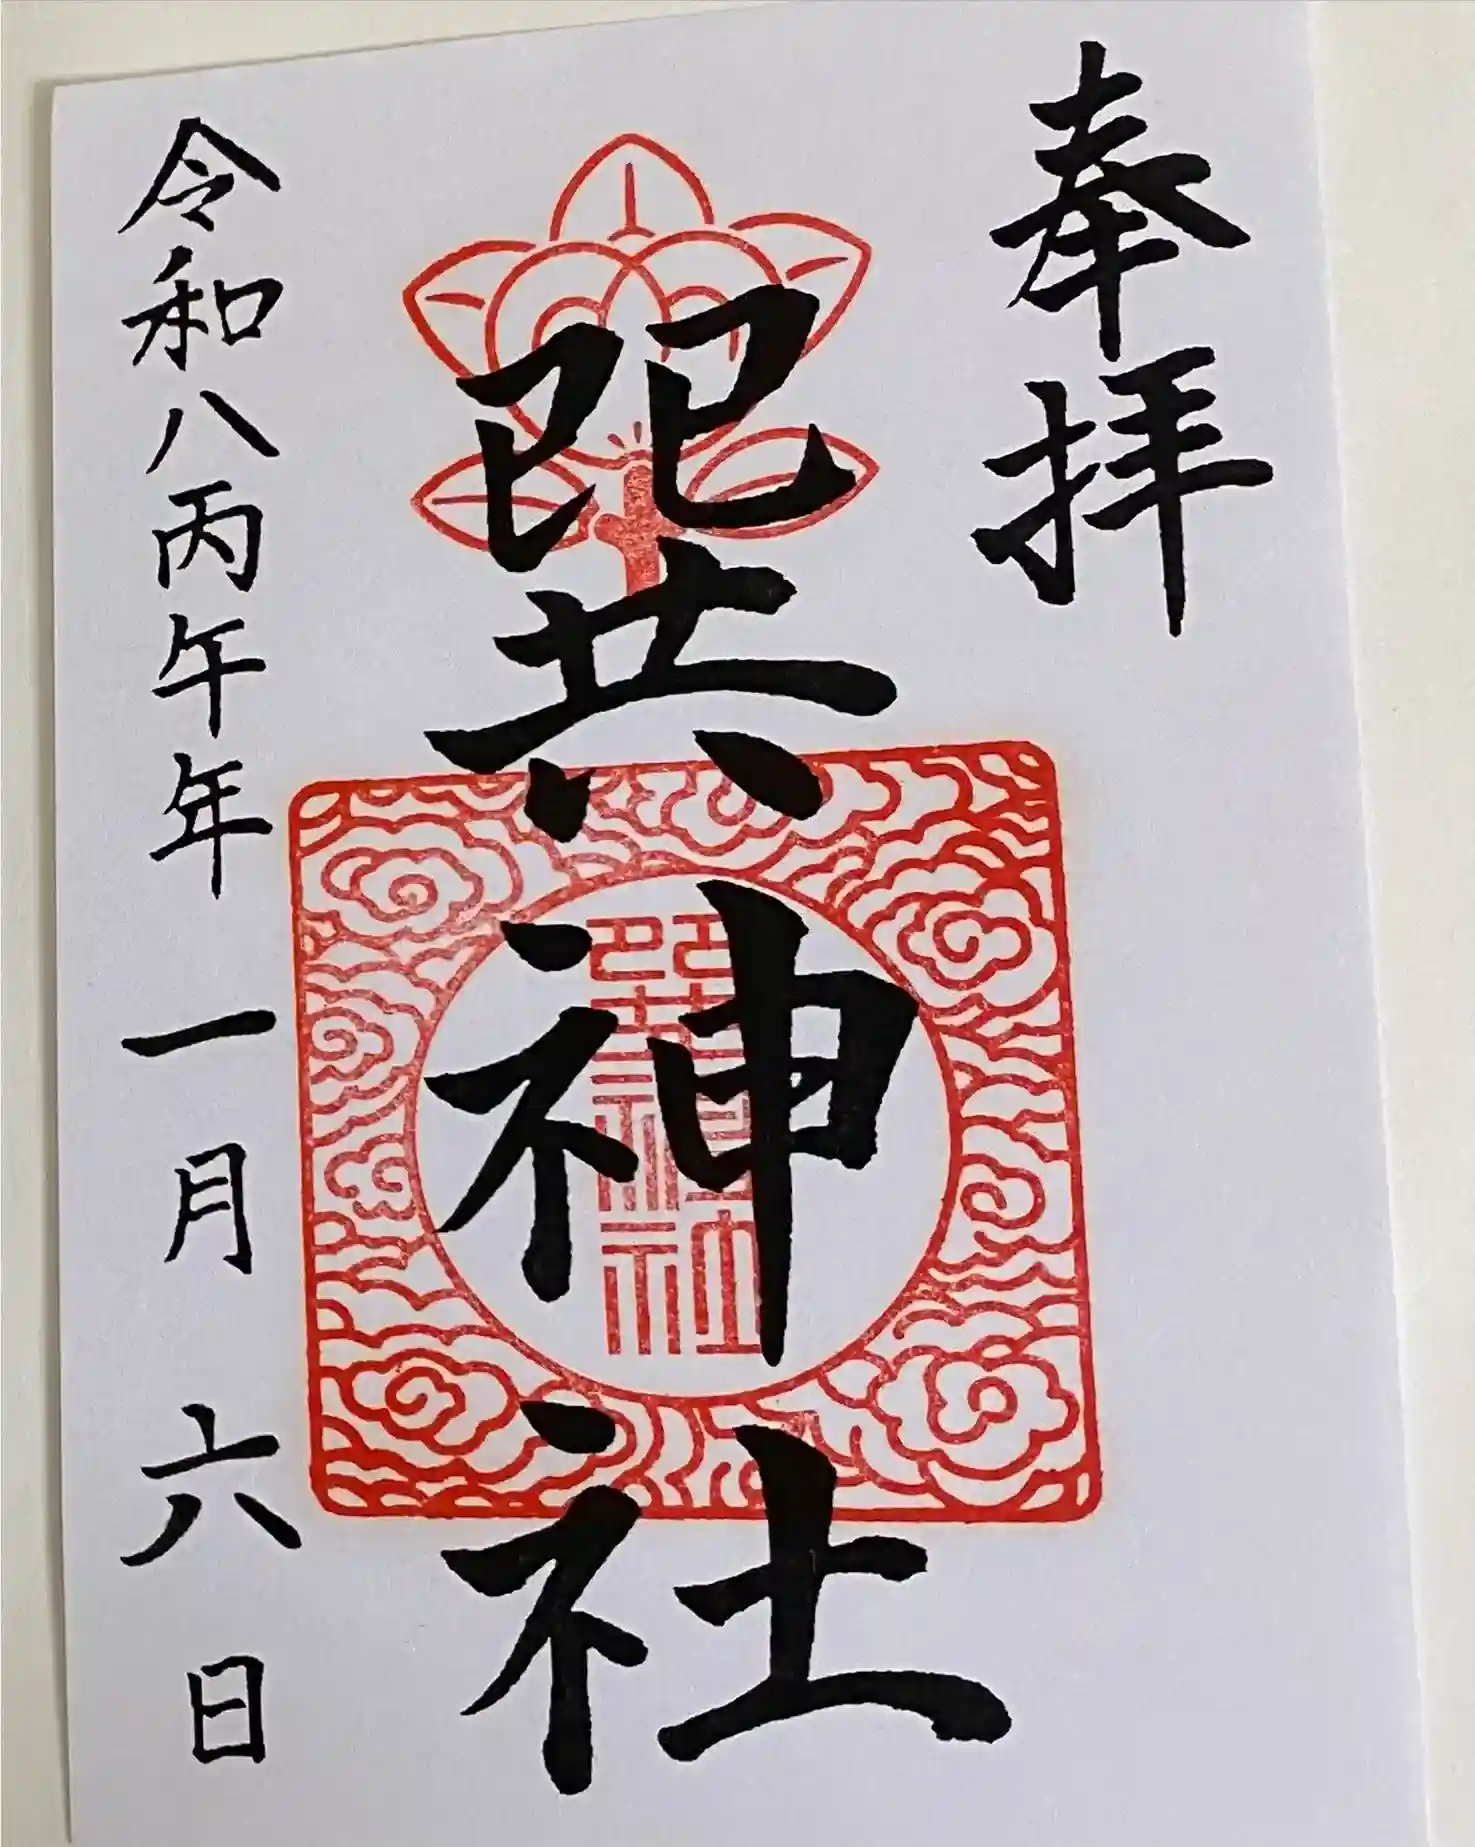 奉拝
巽神社
巽神社
令和八丙午年一月六日